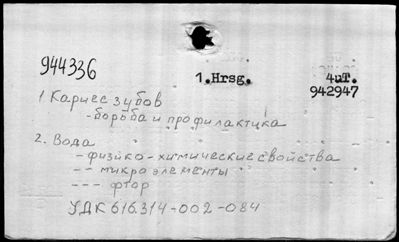 944336
1.Hrsg. 4uT.
942947
1 Кариес зубов
- борьба и профилактика
2. Вода
- физико-химические свойства
-- микроэлементы
--- фтор
УДК 616.314-002-084